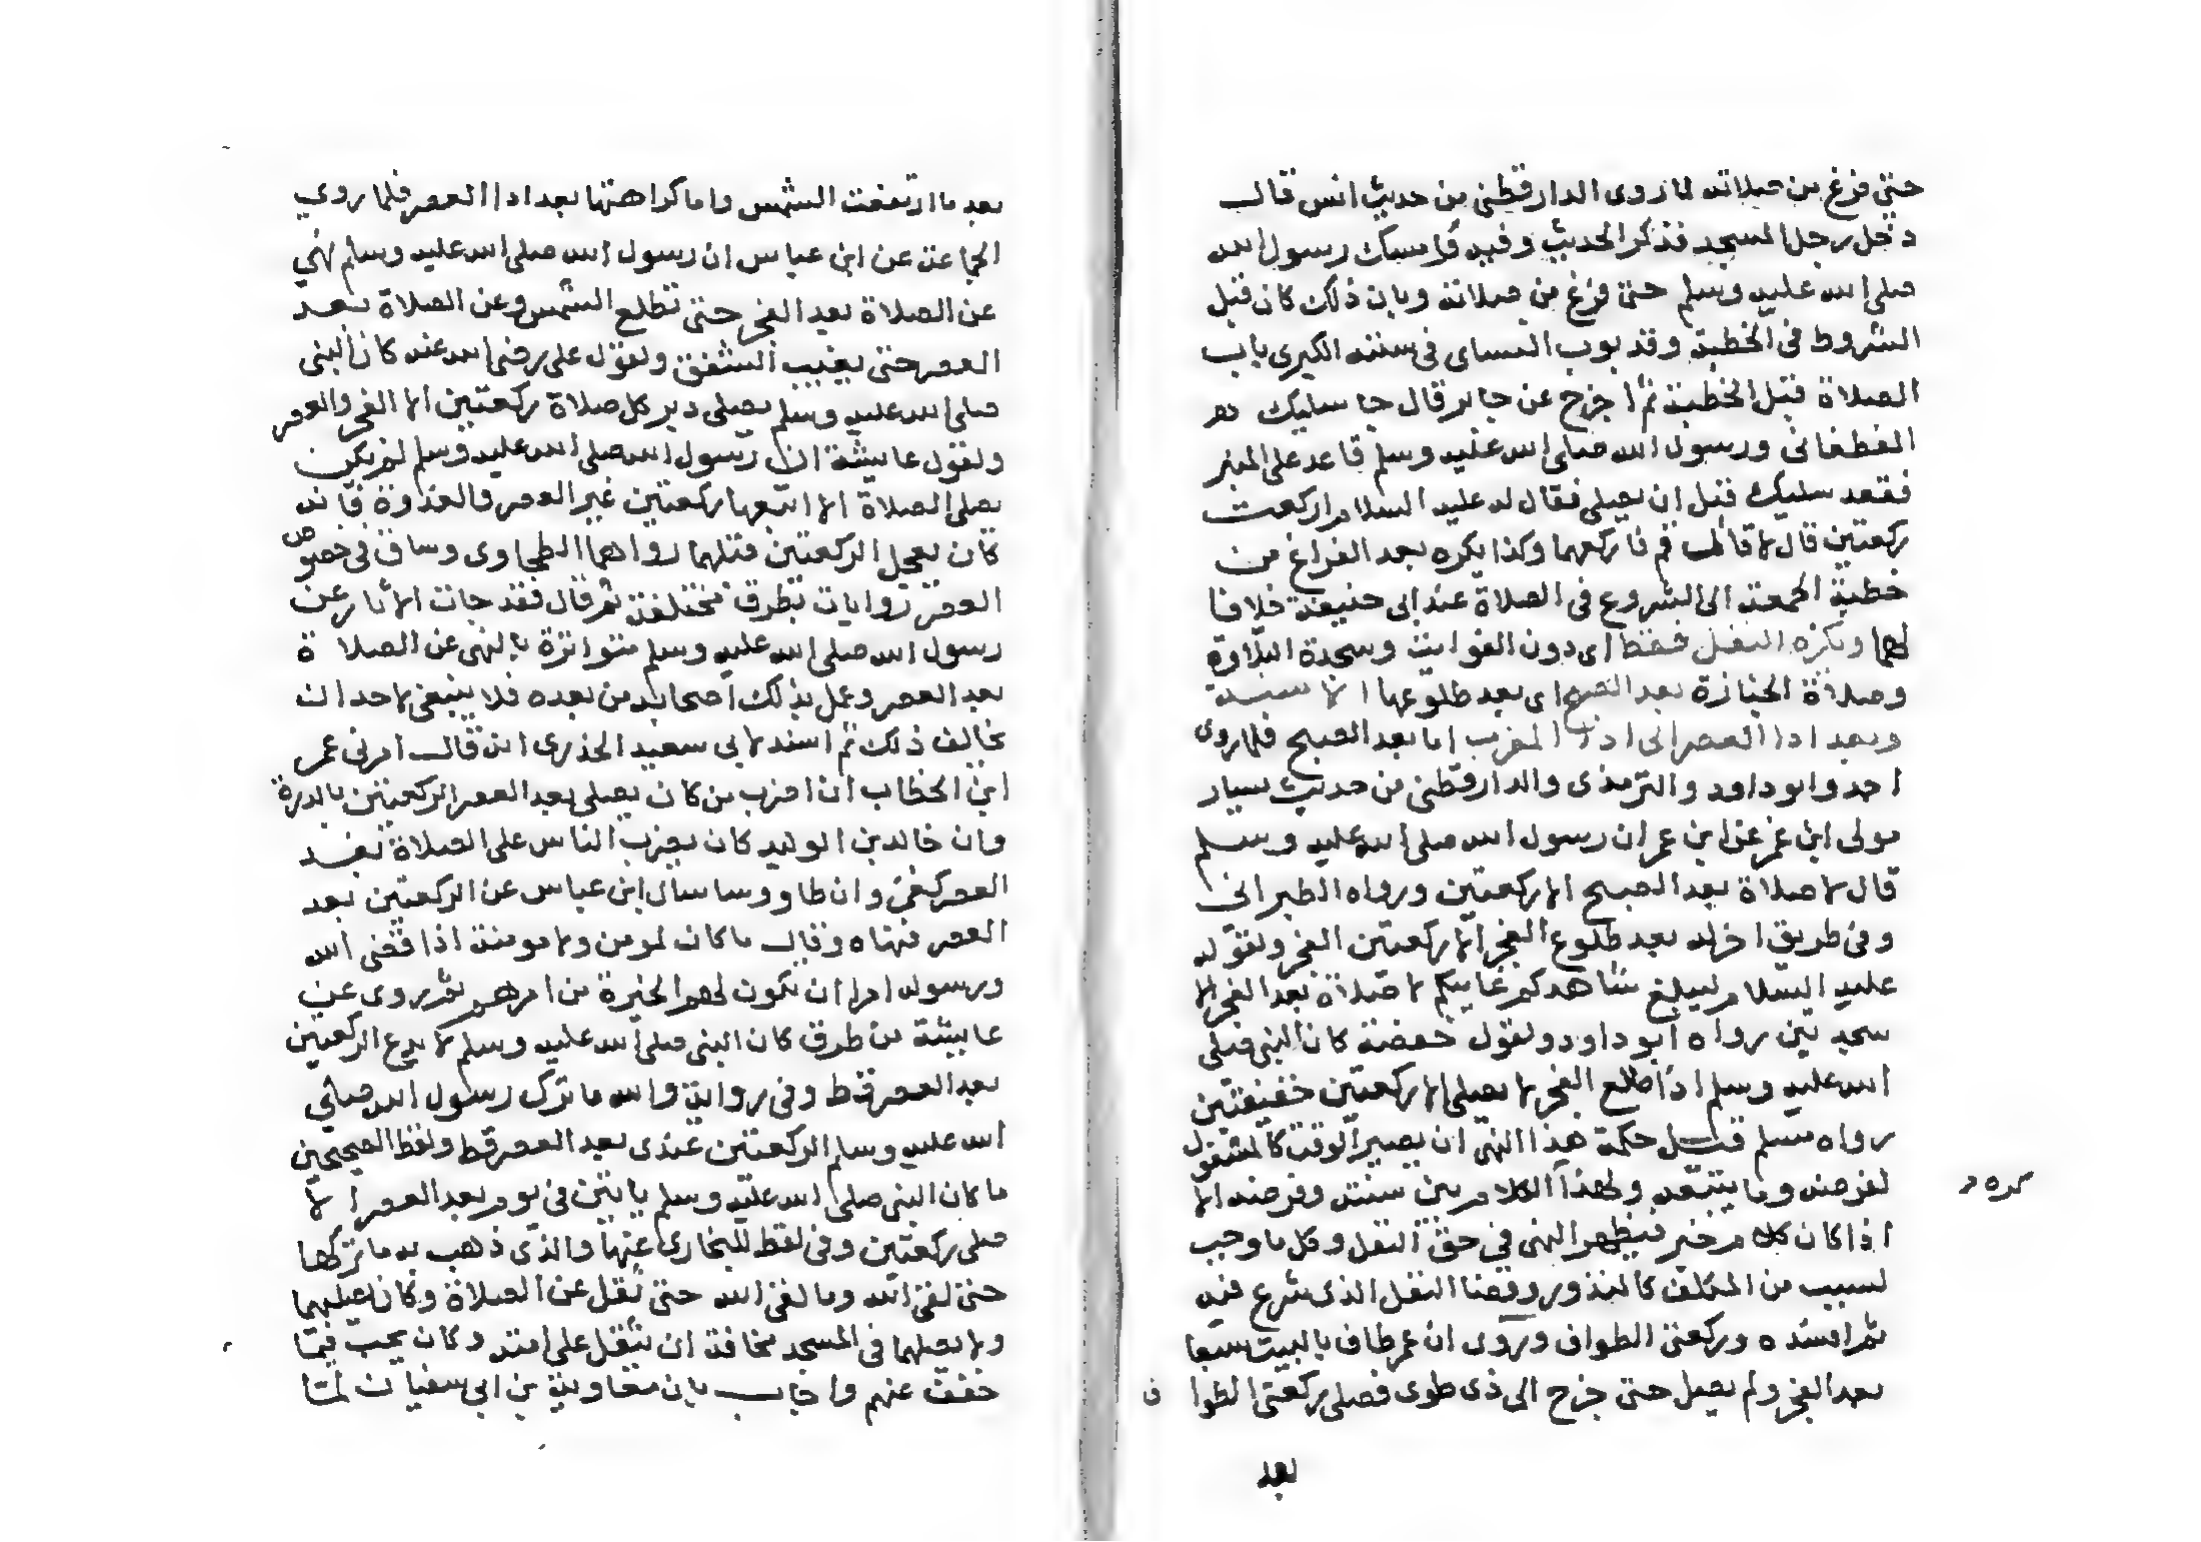 حتى فرغ من صلاته لما روى الدارقطني من حديث انس قال
دخل رجل المسجد فذكر الحديث وفيه فامسك رسول الله
صلى الله عليه وسلم حتى فرغ من صلاته وبان ذلك كان قبل
الشروط في الخطبة وقد بوب النساى في سننه الكبرى باب
الصلاة قبل الخطبة ثم اخرج عن جابر قال جا سليك
الغطفانى ورسول الله صلى الله عليه وسلم قاعد على المنبر
فقعد سليك قبل ان يصلى فقال له عليه السلام اركعت
ركعتين قال لا قال قم فاركعهما وكذا يكره بعد الفراغ من
خطبة الجمعة الى الشروع في الصلاة عند ابى حنيفة خلافا
لهما ويكره النفل فقط اى دون الفوايت وسجدة التلاوة
وصلاة الجنازة بعد الصبح اى بعد طلوعها الا سنته
وبعد ادا العصر الى اذا المغرب اما بعد الصبح فلما روى
احمد وابو داود والترمذى والدارقطنى من حديث يسار
مولى ابن عمر عن ابن عمر ان رسول الله صلى الله عليه وسلم
قال لا صلاة بعد الصبح الا ركعتين ورواه الطبرانى
وفي طريق اخر له بعد طلوع الفجر الا ركعتين الفجر ولقوله
عليه السلام ليبلغ شاهدكم غايبكم لا صلاة بعد الفجر الا
سجدتين رواه ابو داود ولقول حفصة كان النبى صلى
الله عليه وسلم اذا طلع الفجر لا يصلى الا ركعتين خفيفتين
رواه مسلم قيل حكمة هذا النهى ان يصير الوقت كالمشغول
لفرضه وما يتبعه ولهذا الكلام بين سنته وفرضه الا
كره د
اذا كان كلام خير فيظهر النهى في حق النفل وكل ما وجب
لسبب من المكلف كالنذور وقضا النفل الذى شرع فيه
ثم افسده وركعتى الطواف وروى ان عمر طاف بالبيت سبعا
بعد الفجر ولم يصل حتى خرج الى ذى طوى فصلى ركعتى الطواف
بعد
بعد ما ارتفعت الشمس واما كراهتها بعد ادا العصر فلما روى
الجماعة عن ابن عباس ان رسول الله صلى الله عليه وسلم نهى
عن الصلاة بعد الفجر حتى تطلع الشمس وعن الصلاة بعد
العصر حتى يغيب الشفق ولقول على رضى الله عنه كان النبى
صلى الله عليه وسلم يصلى دبر كل صلاة ركعتين الا الفجر والعصر
ولقول عايشة ان رسول الله صلى الله عليه وسلم لم يكن
يصلى الصلاة الا اتبعها ركعتين غير العصر والغدوة فانه
كان يعجل الركعتين قبلهما رواهما الطحاوى وساق في خصوص
العصر روايات بطرق مختلفة ثم قال فقد جات الاثار عن
رسول الله صلى الله عليه وسلم متواترة بالنهى عن الصلاة
بعد العصر وعمل بذلك اصحابه من بعده فلا ينبغى لاحد ان
يخالف ذلك ثم اسند لابى سعيد الخدرى انه قال امرنى عمر
ابن الخطاب ان اضرب من كان يصلى بعد العصر الركعتين بالدرة
وان خالد بن الوليد كان يضرب الناس على الصلاة بعد
العصر كعمر وان طاووسا سال ابن عباس عن الركعتين بعد
العصر فنهاه وقال ما كان لمومن ولا مومنة اذا قضى الله
ورسوله امرا ان يكون لهم الخيرة من امرهم ثم روى عن
عايشة من طرق كان النبى صلى الله عليه وسلم لا يدع الركعتين
بعد العصر قط وفي رواية والله ما ترك رسول الله صلى
الله عليه وسلم الركعتين عندى بعد العصر قط ولفظ الصحيحين
ما كان النبى صلى الله عليه وسلم ياتين في يوم بعد العصر الا
صلى ركعتين وفي لفظ للبخارى عنها والذى ذهب به ما تركها
حتى لقى الله وما لقى الله حتى ثقل عن الصلاة وكان
ولا يصليهما في المسجد مخافة ان يثقل على امته وكان يحب فيما
خفف عنهم واجاب بان معاوية بن ابى سفيان لما